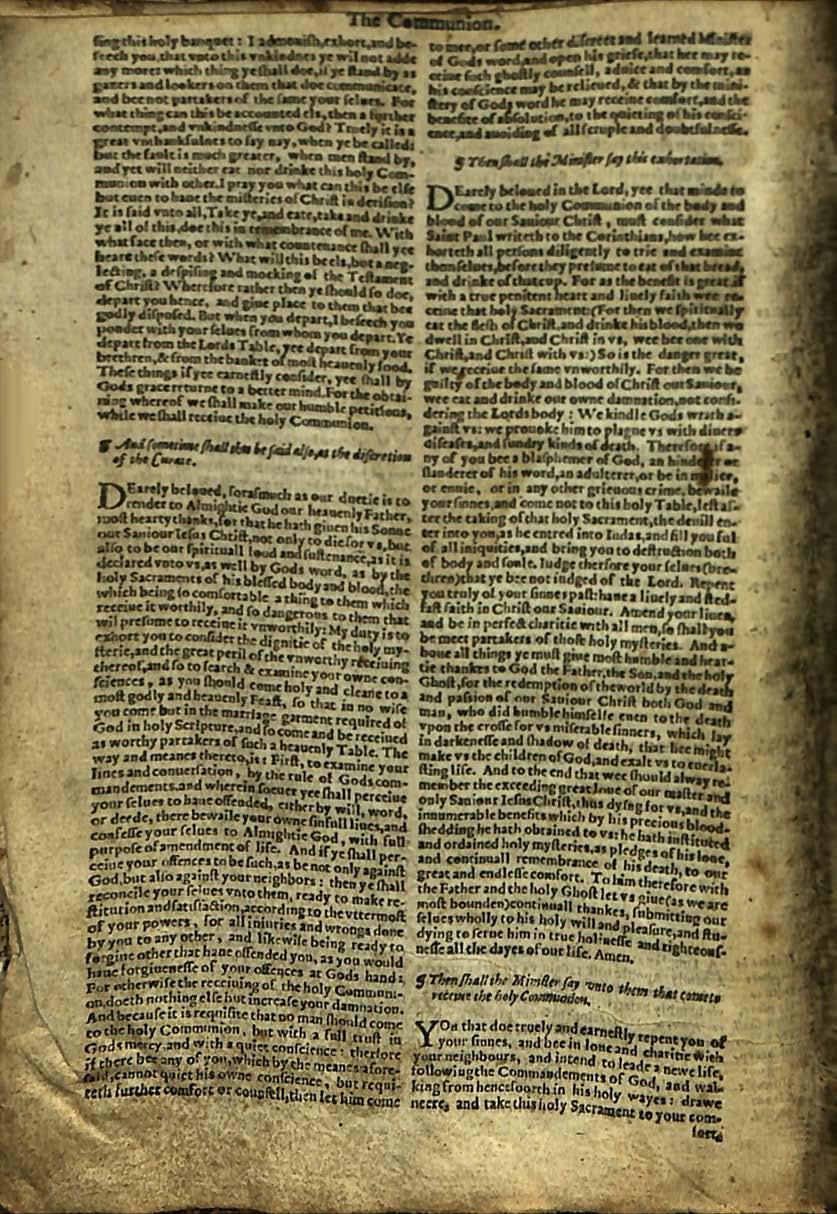 The Communion.
sing this holy banquet: I admonish, exhort, and be-
seech you, that vnto this vnkindnes ye wil not adde
any more: which thing ye shall doe, if ye stand by as
gazers and lookers on them that doe communicate,
and bee not partakers of the same your selues. For
what thing can this be accounted els, then a further
contempt, and vnkindnesse vnto God? Truely it is a
great vnthankfulnes to say nay, when ye be called:
but the fault is much greater, when men stand by,
and yet will neither eat nor drinke this holy Com-
munion with other. I pray you what can this be else
but euen to haue the misteries of Christ in derision?
It is said vnto all, Take ye, and eate, take and drinke
ye all of this, doe this in remembrance of me. With
what face then, or with what countenance shall yee
heare these words? What will this be els, but a neg-
lecting, a despising and mocking of the Testament
of Christ? Wherefore rather then ye should so doe,
depart you hence, and giue place to them that bee
godly disposed. But when you depart, I beseech you
ponder with your selues from whom you depart. Ye
depart from the Lords Table, yee depart from your
brethren, & from the banket of most heauenly food.
These things if yee earnestly consider, yee shall by
Gods grace returne to a better mind. For the obtai-
ning whereof we shall make our humble petitions,
while we shall receiue the holy Communion.
¶ And sometime shall this be said also, at the discretion
of the Curate.
DEarely beloued, forasmuch as our duetie is to
render to Almightie God our heauenly Father,
most hearty thanks, for that he hath giuen his Sonne
our Sauiour Iesus Christ, not only to die for vs, but
also to be our spirituall food and sustenance, as it is
declared vnto vs, as well by Gods word, as by the
holy Sacraments of his blessed body and blood, the
which being so comfortable a thing to them which
receiue it worthily, and so dangerous to them that
wil presume to receiue it vnworthily: My duty is to
exhort you to consider the dignitie of the holy my-
sterie, and the great peril of the vnworthy receiuing
thereof, and so to search & examine your owne con-
sciences, as you should come holy and cleane to a
most godly and heauenly Feast, so that in no wise
you come but in the marriage garment required of
God in holy Scripture, and so come and be receiued
as worthy partakers of such a heauenly Table. The
way and meanes thereto, is: First, to examine your
liues and conuersation, by the rule of Gods com-
mandements, and wherein soeuer yee shall perceiue
your selues to haue offended, either by will, word,
or deede, there bewaile your owne sinfull liues, and
confesse your selues to Almightie God, with full
purpose of amendment of life. And if ye shall per-
ceiue your offences to be such, as be not only against
God, but also against your neighbors: then ye shall
reconcile your selues vnto them, ready to make re-
stitution and satisfaction, according to the vttermost
of your powers, for all iniuries and wrongs done
by you to any other, and likewise being ready to
forgiue other that haue offended you, as you would
haue forgiuenesse of your offences at Gods hand:
For otherwise the receiuing of the holy Communi-
on, doeth nothing else but increase your damnation.
And because it is requisite that no man should come
to the holy Communion, but with a full trust in
Gods mercy, and with a quiet conscience: therfore
if there bee any of you, which by the meanes afore-
said, cannot quiet his owne conscience, but requi-
reth further comfort or counsell, then let him come
to mee, or some other discreet and learned Minister
of Gods word, and open his griefe, that hee may re-
ceiue such ghostly counsell, aduice and comfort, as
his conscience may be relieued, & that by the mini-
stery of Gods word he may receiue comfort, and the
benefite of absolution, to the quieting of his consci-
ence, and auoiding of all scruple and doubtfulnesse.
¶ Then shall the Minister say this exhortation.
DEarely beloued in the Lord, yee that minde to
come to the holy Communion of the body and
blood of our Sauiour Christ, must consider what
Saint Paul writeth to the Corinthians, how hee ex-
horteth all persons diligently to trie and examine
themselues, before they presume to eat of that bread,
and drinke of that cup. For as the benefit is great, if
with a true penitent heart and liuely faith wee re-
ceiue that holy Sacrament: (For then we spiritually
eat the flesh of Christ, and drinke his blood, then we
dwell in Christ, and Christ in vs, wee bee one with
Christ, and Christ with vs:) So is the danger great,
if we receiue the same vnworthily. For then we be
guilty of the body and blood of Christ our Sauiour,
wee eat and drinke our owne damnation, not consi-
dering the Lords body: We kindle Gods wrath a-
gainst vs: we prouoke him to plague vs with diuers
diseases, and sundry kinds of death. Therefore if a-
ny of you bee a blasphemer of God, an hinderer or
slanderer of his word, an adulterer, or be in malice,
or enuie, or in any other grieuous crime, bewaile
your sinnes, and come not to this holy Table, lest af-
ter the taking of that holy Sacrament, the deuill en-
ter into you, as he entred into Iudas, and fill you ful
of all iniquities, and bring you to destruction both
of body and soule. Iudge therfore your selues (bre-
thren) that ye bee not iudged of the Lord. Repent
you truly of your sinnes past: haue a liuely and sted-
fast faith in Christ our Sauiour. Amend your liues,
and be in perfect charitie with all men, so shall you
be meet partakers of those holy mysteries. And a-
boue all things ye must giue most humble and hear-
tie thankes to God the Father, the Son, and the holy
Ghost, for the redemption of the world by the death
and passion of our Sauiour Christ both God and
man, who did humble himselfe euen to the death
vpon the crosse for vs miserable sinners, which lay
in darkenesse and shadow of death, that hee might
make vs the children of God, and exalt vs to euerla-
sting life. And to the end that wee should alway re-
member the exceeding great loue of our master and
only Sauiour Iesus Christ, thus dying for vs, and the
innumerable benefits which by his precious blood-
shedding he hath obtained to vs: he hath instituted
and ordained holy mysteries, as pledges of his loue,
and continuall remembrance of his death, to our
great and endlesse comfort. To him therefore with
the Father and the holy Ghost let vs giue (as we are
most bounden) continuall thankes, submitting our
selues wholly to his holy will and pleasure, and stu-
dying to serue him in true holinesse and righteous-
nesse all the dayes of our life. Amen.
¶ Then shall the Minister say vnto them that come to
receiue the holy Communion.
YOu that doe truely and earnestly repent you of
your sinnes, and bee in loue and charitie with
your neighbours, and intend to leade a newe life,
following the Commandements of God, and wal-
king from hencefoorth in his holy wayes: drawe
neere, and take this holy Sacrament to your com-
forte